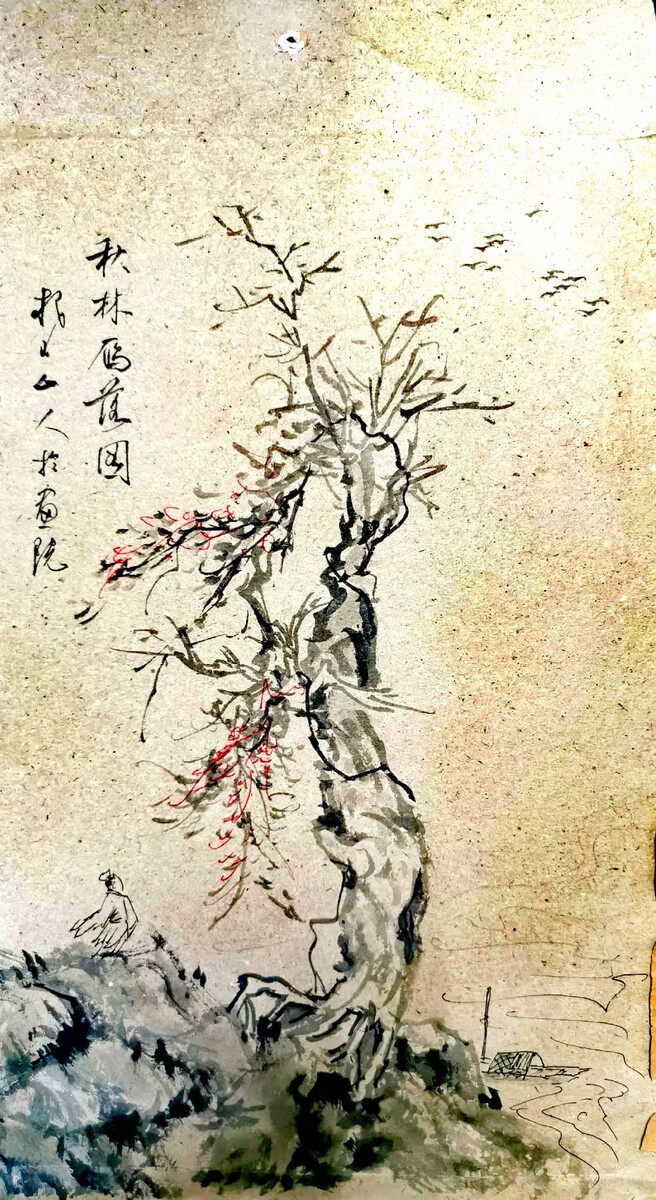 秋林雁落图
山人於画院